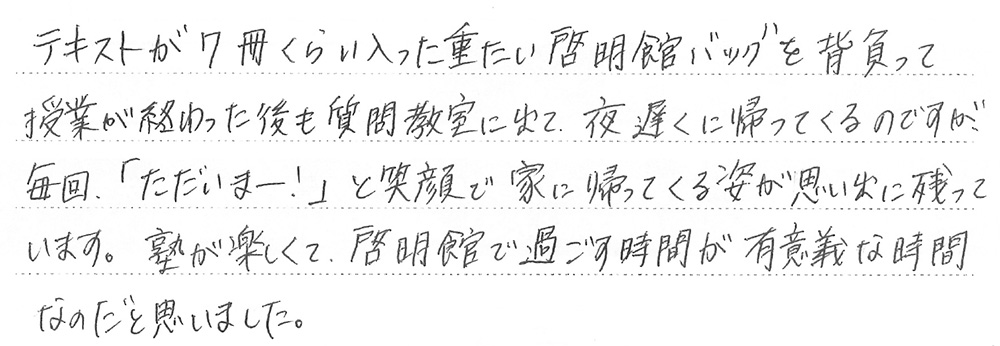 テキストが7冊くらい入った重たい啓明館バッグを背負って
授業が終わった後も質問教室に出て、夜遅くに帰ってくるのですが、
毎回、「ただいまー!」と笑顔で家に帰ってくる姿が思い出に残って
います。塾が楽しくて、啓明館で過ごす時間が有意義な時間
なのだと思いました。